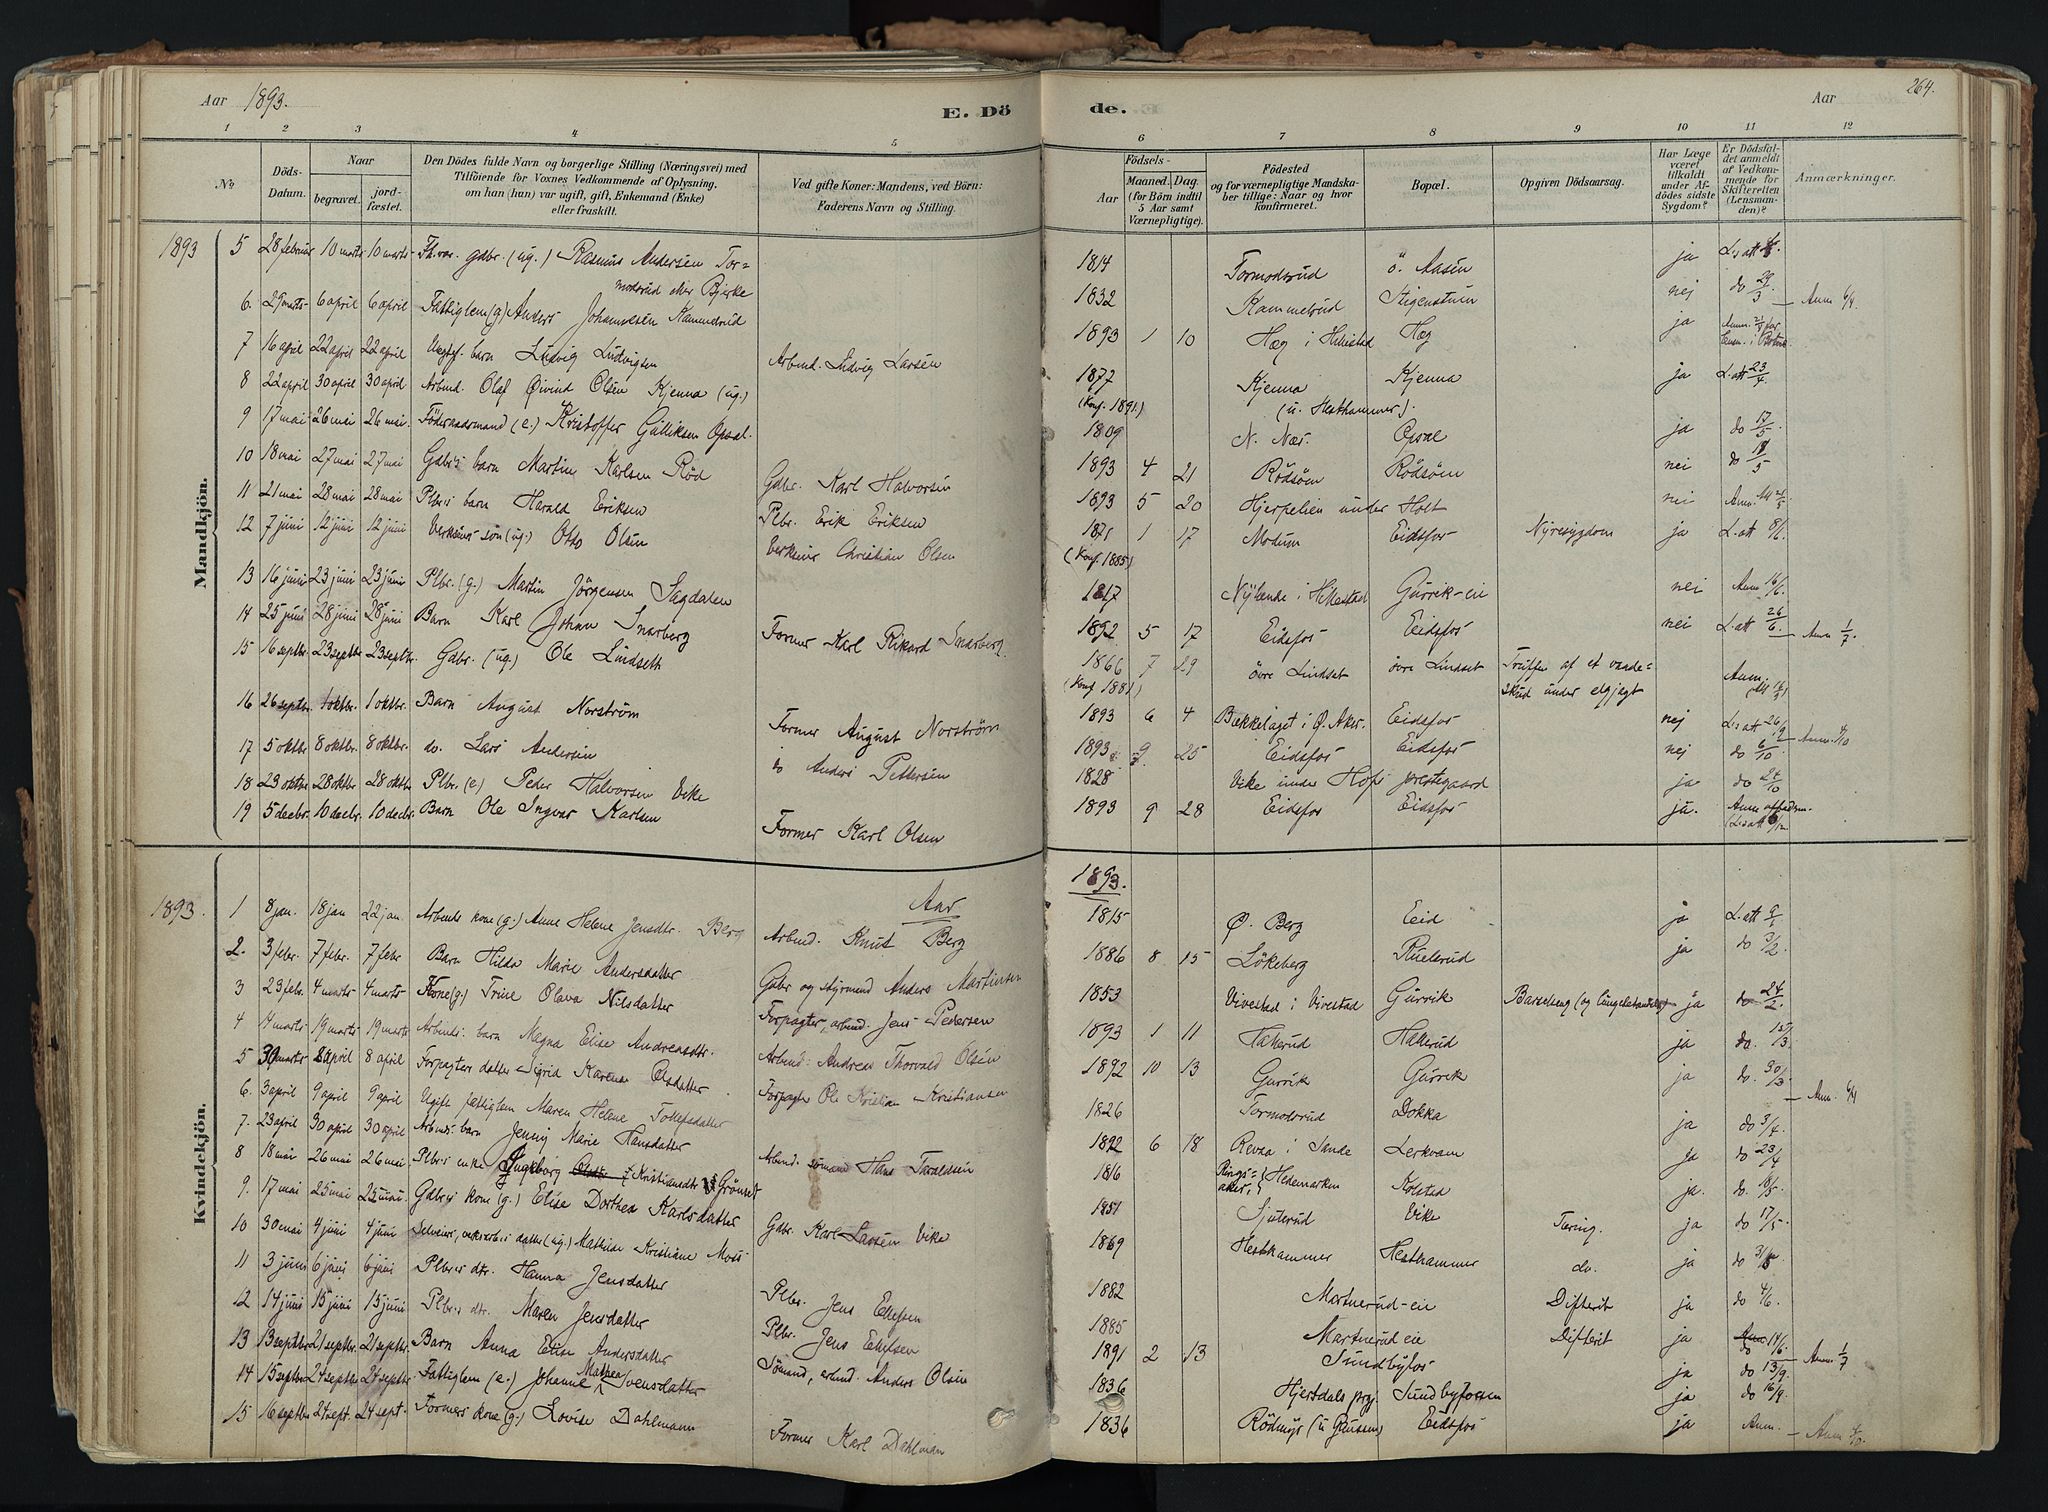 Aar 1893.
E. Döde.
Aar
264.
1 2 3 4 5 6 7 8 9 10 11 12
No
Döds-Datum.
Naar
begravet.
jord-fæstet.
Den Dödes fulde Navn og borgerlige Stilling (Næringsvei) med
Tilföiende for Voxnes Vedkommende af Oplysning,
om han (hun) var ugift, gift, Enkemand (Enke)
eller fraskilt.
Ved gifte Koner: Mandens, ved Börn:
Faderens Navn og Stilling.
Födsels-
Aar
Maaned. Dag.
(for Börn indtil
5 Aar samt
Værnepligtige).
Födested
og for værnepligtige Mandska-
ber tillige: Naar og hvor
konfirmeret.
Bopæl.
Opgiven Dödsaarsag.
Har Læge
været
tilkaldt
under Af-
dödes sidste
Sygdom?
Er Dödsfal-
det anmeldt
af Vedkom-
mende for
Skifteretten
(Lensman-
den)?
Anmærkninger.
Mandkjön.
1893 5 28 februar 10 marts 10 marts Fh.v. gdbr. (ug.) Rasmus Andersen Tor=
modsrud eller Bjerke 1814 Tormodsrud ö. Aasen ja L.s att
6. 29 marts 6 april 6 april Fattiglem (g) Anders Johannesen Kammelrud 1832 Kammelrud Stigenstuen nej do 29/3 Anm 6/4.
7 16 april 22 april 22 april barn Ludvig Ludvigsen Arbmd. Ludvig Larsen 1893 1 10 Hæg i Hillestad Hæg ja
8 22 april 30 april 30 april Arbmd. Olaf Öivind Olsen Kjenna (ug.) 1877 Kjenna Kjenna ja L. att 23/4.
(Konf. 1891.) (u. Hesthammer).
9 17 mai 26 mai 26 mai. Föderaadsmand (e.) Kristoffer Gulliksen Opsal. 1809 N. Næs. Opsal ja do 17/5.
10 18 mai 27 mai 27 mai Gdbr.s barn Martin Karlsen Röd Gdbr. Karl Halvorsen 1893 4 21 Rödsöm Rödsöm nei do
11 21 mai 28 mai 28 mai Plbr.s barn Harald Eriksen Plbr. Erik Eriksen 1893 5 20 Hjerpelien under Holt nei Anm.
12 7 juni 12 juni 12 juni Verkseiers sön (ug.) Otto Olsen Verkseier Christian Olsen 1871 1 17 Modum Eidsfos Nyresygdom ja L. att 8/6.
(Konf. 1885)
13 16 juni 23 juni 23 juni Plbr. (g.) Martin Jörgensen Sagdalen 1817 Nylende i Hillestad Gurrik-eie nei Anm 16/6.
14 25 juni 28 juni 28 juni Barn Karl Johan Snarberg Former Karl Rikard Snarberg. 1892 5 17 Eidsfos Eidsfos nei L. att 26/6. Anm 1/7.
15 16 septbr. 23 septbr. 23 septbr. Gdbr. (ug.) Ole Lindsett 1866 7 29 övre Lindset övre Lindset Truffen af et vaade=
skud under elgjagt Anm.
(Konf 1881.)
16 26 septbr. 1 oktbr. 1 oktbr. Barn August Norström Former August Norström 1893 6 4 Bækkelaget i Ö. Aker. Eidsfos nej L. att 26/9 Anm.
17 5 oktbr. 8 oktbr. 8 oktbr. do. Lars Andersen do Anders Pettersen 1893 9. 25 Eidsfos Eidsfos nej do 6/10
18 23 oktbr 28 oktbr 28 oktbr Plbr. (e) Peder Halvorsen Vike 1828 Vike under Hofs prestegaard ja do 24/10
19 5 decbr. 10 decbr. 10 decbr. Barn Ole Ingvar Karlsen Former Karl Olsen 1893 9 28 Eidsfos Eidsfos ja. Anm
Kvindekjön.
Aar 1893.
1893. 1 8 jan. 18 jan 22 jan. Arbmds kone (g.) Anne Helene Jensdtr. Berg Arbmd. Knut Berg 1815 Ö. Berg Eid ja L. att
2. 3 febr. 7 febr. 7 febr Barn Hilda Marie Andersdatter Gdbr og styrmand Anders Martinsen 1886 8 15 Lökeberg Ruelsrud ja do 3/2.
3 23 febr. 4 marts 4 marts Kone (g.) Trine Olava Nilsdatter Forpagter, arbmd. Jens Pedersen 1853 Vivestad i Vivestad Gurrik Barselseng (og lungebetændelse) ja do 24/2.
4 14 marts 19 marts 19 marts Arbmds. barn Magna Elise Andreasdtr. Arbmd: Andreas Thorvald Olsen 1893 1 11 Hakerud Hakerud ja do. 15/3.
5 30 marts 8 april 8 april Forpagters datter Sigrid Karense Olsdatter Forpagter Ole Kristian Kristiansen 1892 10 13 Gurrik Gurrik ja do. 30/3. Anm. 6/4
6. 3 april 9 april 9 april Ugift fattiglem Maren Helene Tollefsdatter 1826 Tormodsrud Dokka ja do 3/4.
7. 23 april 30 april 30 april Arbmds. barn Jenny Marie Hansdatter Arbmd. sömand Hans Taraldsen 1892 6 18 Revaa i Sande Lerkvam ja do 23/4
8 18 mai 26 mai 26 mai. Plbr.s enke Ingeborg Kristiansdtr Grönset 1816 Rings=
aker, Hedemarken Kolstad ja. do. 18/5.
9. 17 mai 25 mai 25 mai. Gdbr.s kone (g.) Elise Dorthea Karlsdatter Gdbr. Karl Larsen Vike 1851 Sjuterud Vike Tæring. ja do 17/5.
10 30 mai 4 juni 4 juni Selveier, verksarb.s datter (ug.) Mathilde Kristiane Moss 1869 Hesthammer Hesthammer do. ja do
11 3 juni 6 juni 6 juni Plbr.s dtr. Hanna Jensdatter Plbr. Jens Ellefsen 1882 Martnerud-eie Difterit ja do 4/6.
12 14 juni 15 juni 15 juni Plbr.s dtr. Maren Jensdatter Plbr. Jens Ellefsen 1885 Martnerud eie Difterit ja do 14/6. Anm. 1/7
13 13 septbr 21 septbr. 21 septbr. Barn Anna Elise Andersdatter Sömand, arbmd. Anders Olsen 1891 2 13 Sundbyfos ja do 13/9.
14 15 septbr 24 septbr 24 septbr. Fattiglem (e.) Johanne Mathea Svensdatter 1836 Hjertdals prgj. Sundbyfossen ja do 16/9.
15 16 septbr 24 sept. 24 sept. Formers kone (g.) Lovise Dahlmann Former Karl Dahlman 1836 Rödmyr (u Eidsfos ja Anm. Anm